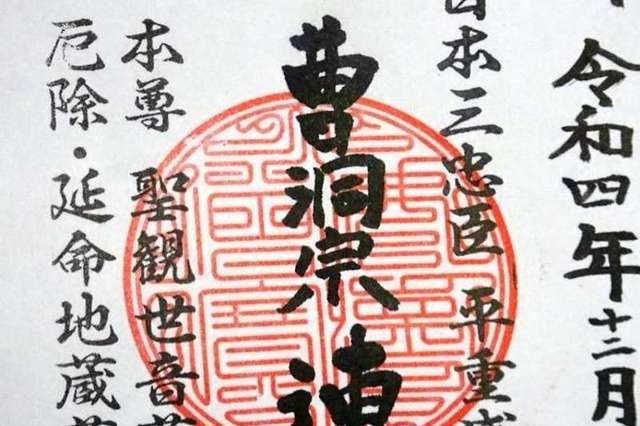 令和四年十二月
日本三忠臣 平重盛
曹洞宗 連
本尊 聖観世音菩
厄除・延命地蔵菩